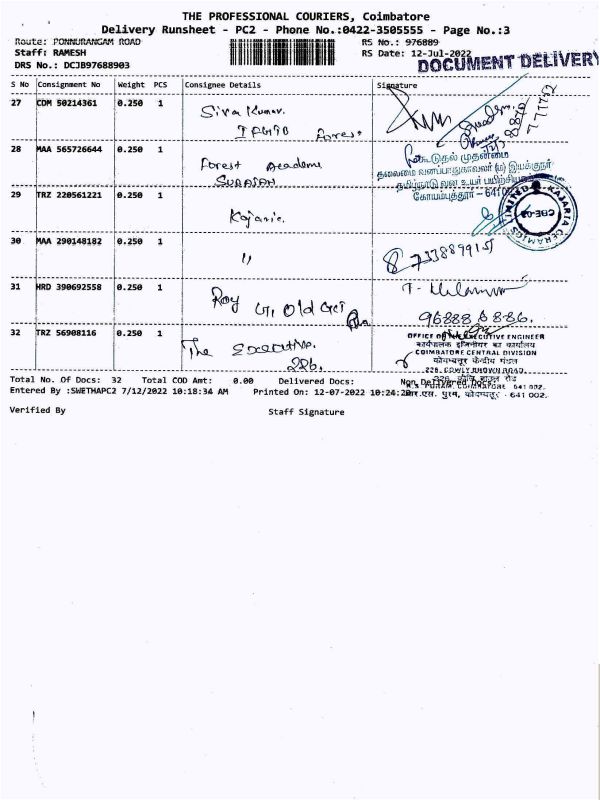 THE PROFESSIONAL COURIERS, Coimbatore
Delivery Runsheet - PC2 - Phone No.:0422-3505555 - Page No.:3
Route: PONNURANGAM ROAD
RS No.: 976889
Staff: RAMESH
RS Date: 12-Jul-2022
DRS No.: DCJB97688903
DOCUMENT DELIVERY
S No Consignment No Weight PCS Consignee Details Signature
27 CDM 50214361 0.250 1 Siva Kumar.
Forest
28 MAA 565726644 0.250 1 Forest Academy
கூடுதல் முதன்மை
தலைமை வனப்பாதுகாவலர் (ம) இயக்குநர்
தமிழ்நாடு வன உயர் பயிற்சியகம்
கோயம்புத்தூர் - 641
29 TRZ 220561221 0.250 1 Kajaria.
KAJARIA CERAMICS LIMITED
30 MAA 290148182 0.250 1 "
8733889915
31 HRD 390692558 0.250 1 Roy
Old
96888 8886.
32 TRZ 56908116 0.250 1 The Executive.
226.
OFFICE OF THE EXECUTIVE ENGINEER
कार्यपालक इंजिनीयर का कार्यालय
COIMBATORE CENTRAL DIVISION
कोयम्बतूर केन्द्रीय मंडल
226, COWLY BROWN ROAD,
R.S. PURAM, COIMBATORE 641 002.
आर.एस. पुरम, कोयम्बतूर - 641 002.
Total No. Of Docs: 32 Total COD Amt: 0.00 Delivered Docs: Non Delivered Docs:
Entered By :SWETHAPC2 7/12/2022 10:18:34 AM Printed On: 12-07-2022 10:24:20
Verified By Staff Signature